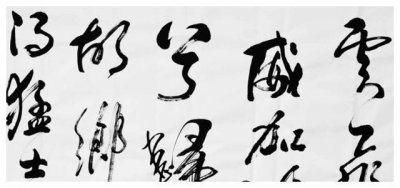 雲飛
威加
兮歸
故鄉
得猛士